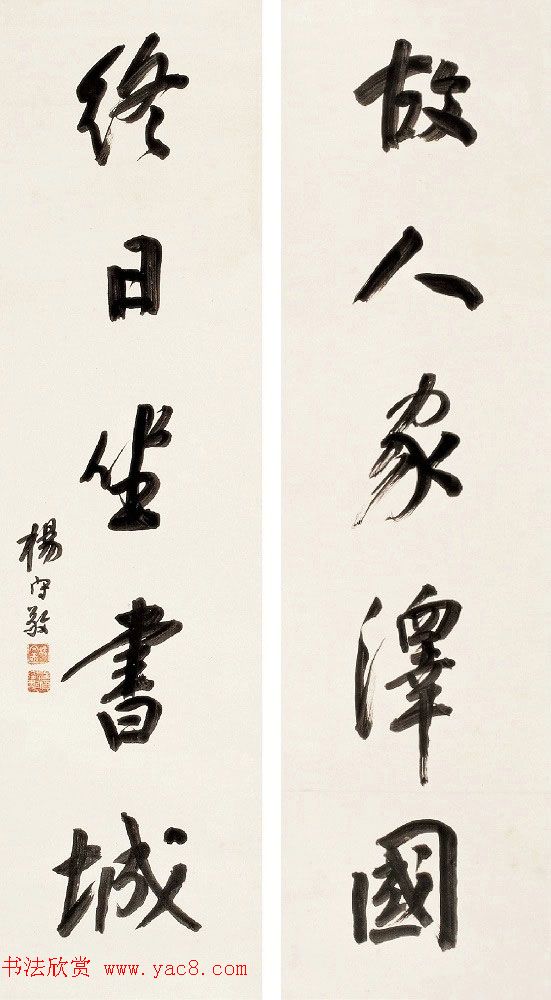 故人家澤國
終日坐書城
楊守敬
书法欣赏 www.yac8.com